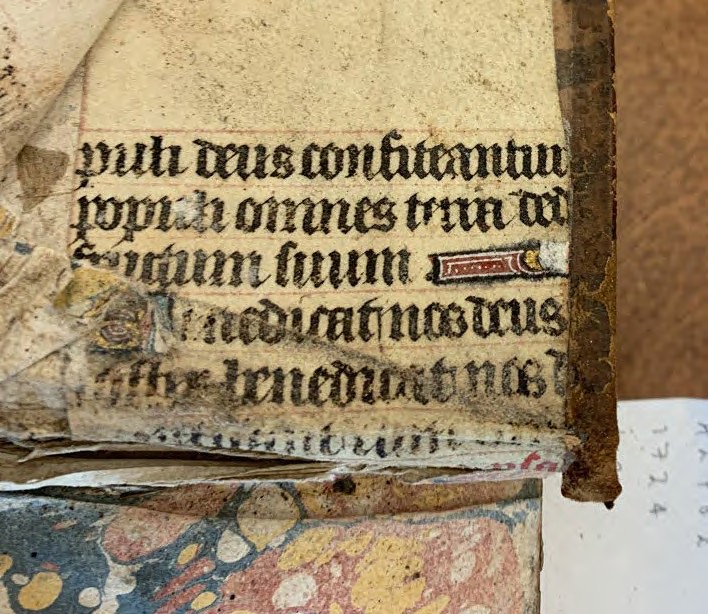 puli deus confiteantur
populi omnes terra ded
fructum suum
Benedicat nos deus
noster benedicat nos d
psa
1724